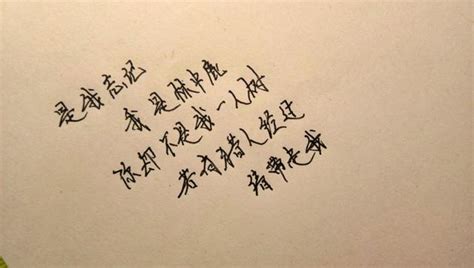 是我忘记
我是林中鹿
你却不是我一人树
若有猎人经过
请带走我